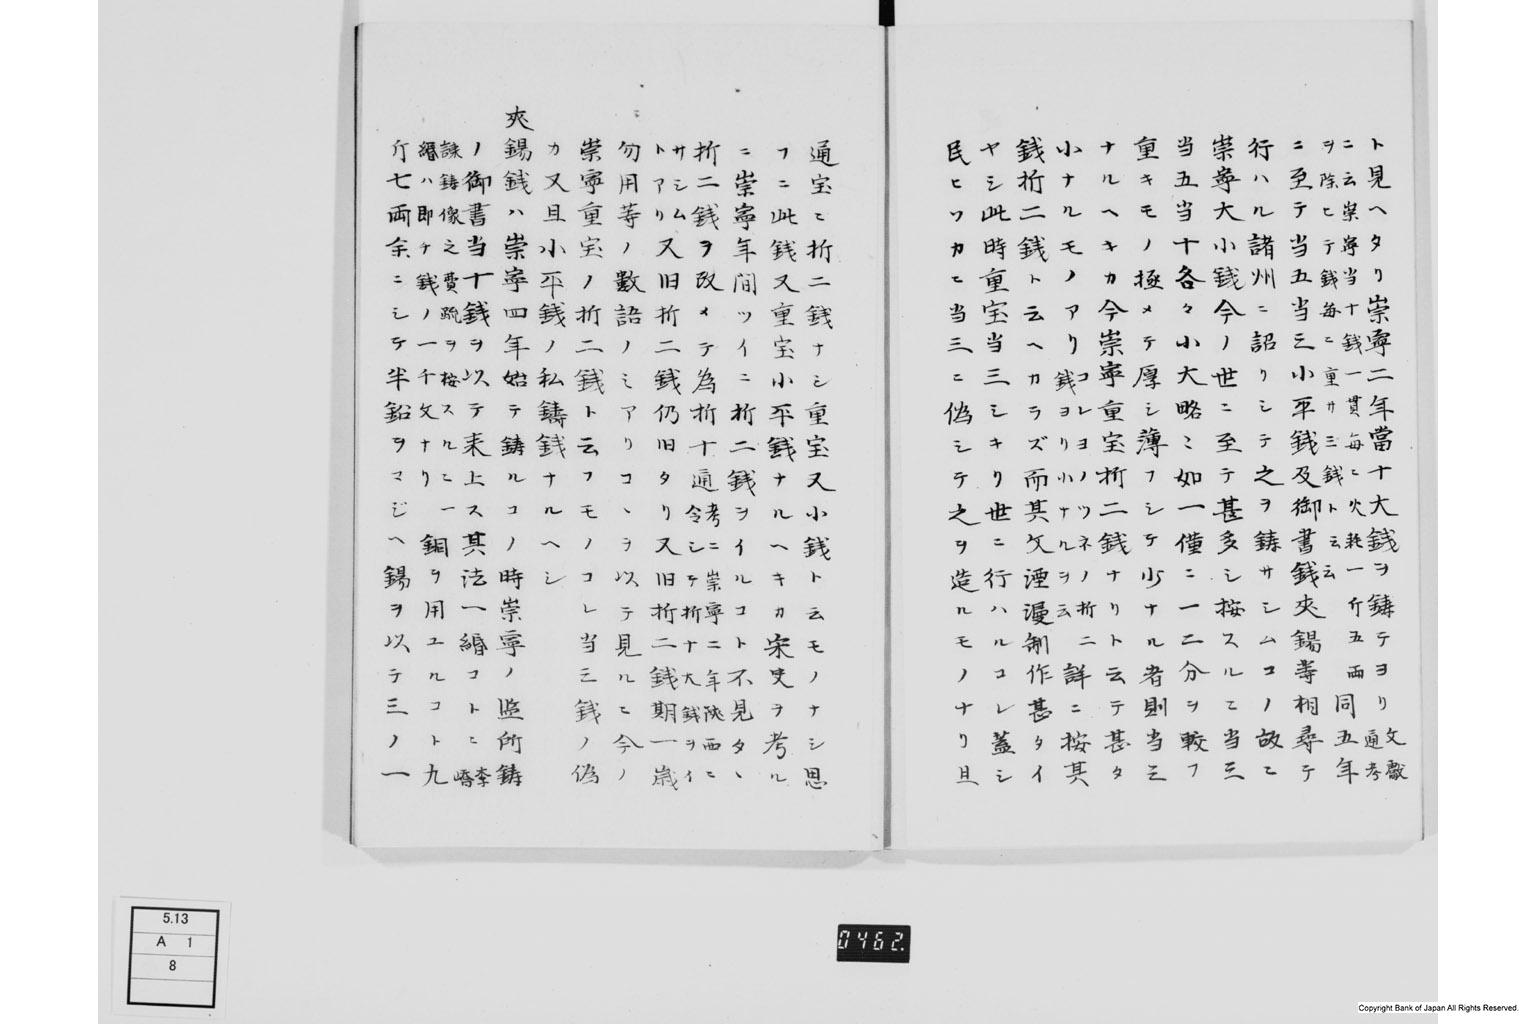 ト見ヘタリ崇寧二年當十大銭ヲ鋳テヨリ文獻通考
ニ云崇寧当十銭一貫毎ニ火耗一斤五両
ヲ除ヒテ銭毎ニ重サ三銭ト云
同五年
ニ至テ当五当三小平銭及御書銭夾錫等相尋テ
行ハル諸州ニ詔リシテ之ヲ鋳サシムコノ故ニ
崇寧大小銭今ノ世ニ至テ甚多シ按スルニ当三
当五当十各々小大略ニ如一僅ニ一二分ヲ較フ
重キモノ極メテ厚シ薄フシテ少ナル者則当三
ナルヘキカ今崇寧重宝折二銭ナリト云テ甚タ
小ナルモノアリコレヨノツネノ折二
銭ヨリ小ナルヲ云
詳ニ按其
銭折二銭ト云ヘカラズ而其文湮漫制作甚タイ
ヤシ此時重宝当三シキリ世ニ行ハルコレ蓋シ
民ヒソカニ当三ニ偽シテ之ヲ造ルモノナリ且
通宝ニ折二銭ナシ重宝又小銭ト云モノナシ思
フニ此銭又重宝小平銭ナルヘキカ宋史ヲ考ル
ニ崇寧年間ツイニ折二銭ヲイルコト不見タヽ
折二銭ヲ改メテ為折十通考ニ崇寧二年陝西ニ
令シテ折十大銭ヲイ
サシム
トアリ又旧折二銭仍旧タリ又旧折二銭期一歳
勿用等ノ數語ノミアリコヽヲ以テ見ルニ今ノ
崇寧重宝ノ折二銭ト云フモノコレ当三銭ノ偽
カ又且小平銭ノ私鋳銭ナルヘシ
夾錫銭ハ崇寧四年始テ鋳ルコノ時崇寧ノ監所鋳
ノ御書当十銭ヲ以テ来上ス其法一緡コトニ李
嶠
諌鋳像之費疏ヲ按スルニ一
緡ハ即チ銭ノ一千文ナリ
銅ヲ用ユルコト九
斤七両余ニシテ半鉛ヲマジヘ錫ヲ以テ三ノ一
5.13
A 1
8
0462.
Copyright Bank of Japan All Rights Reserved.